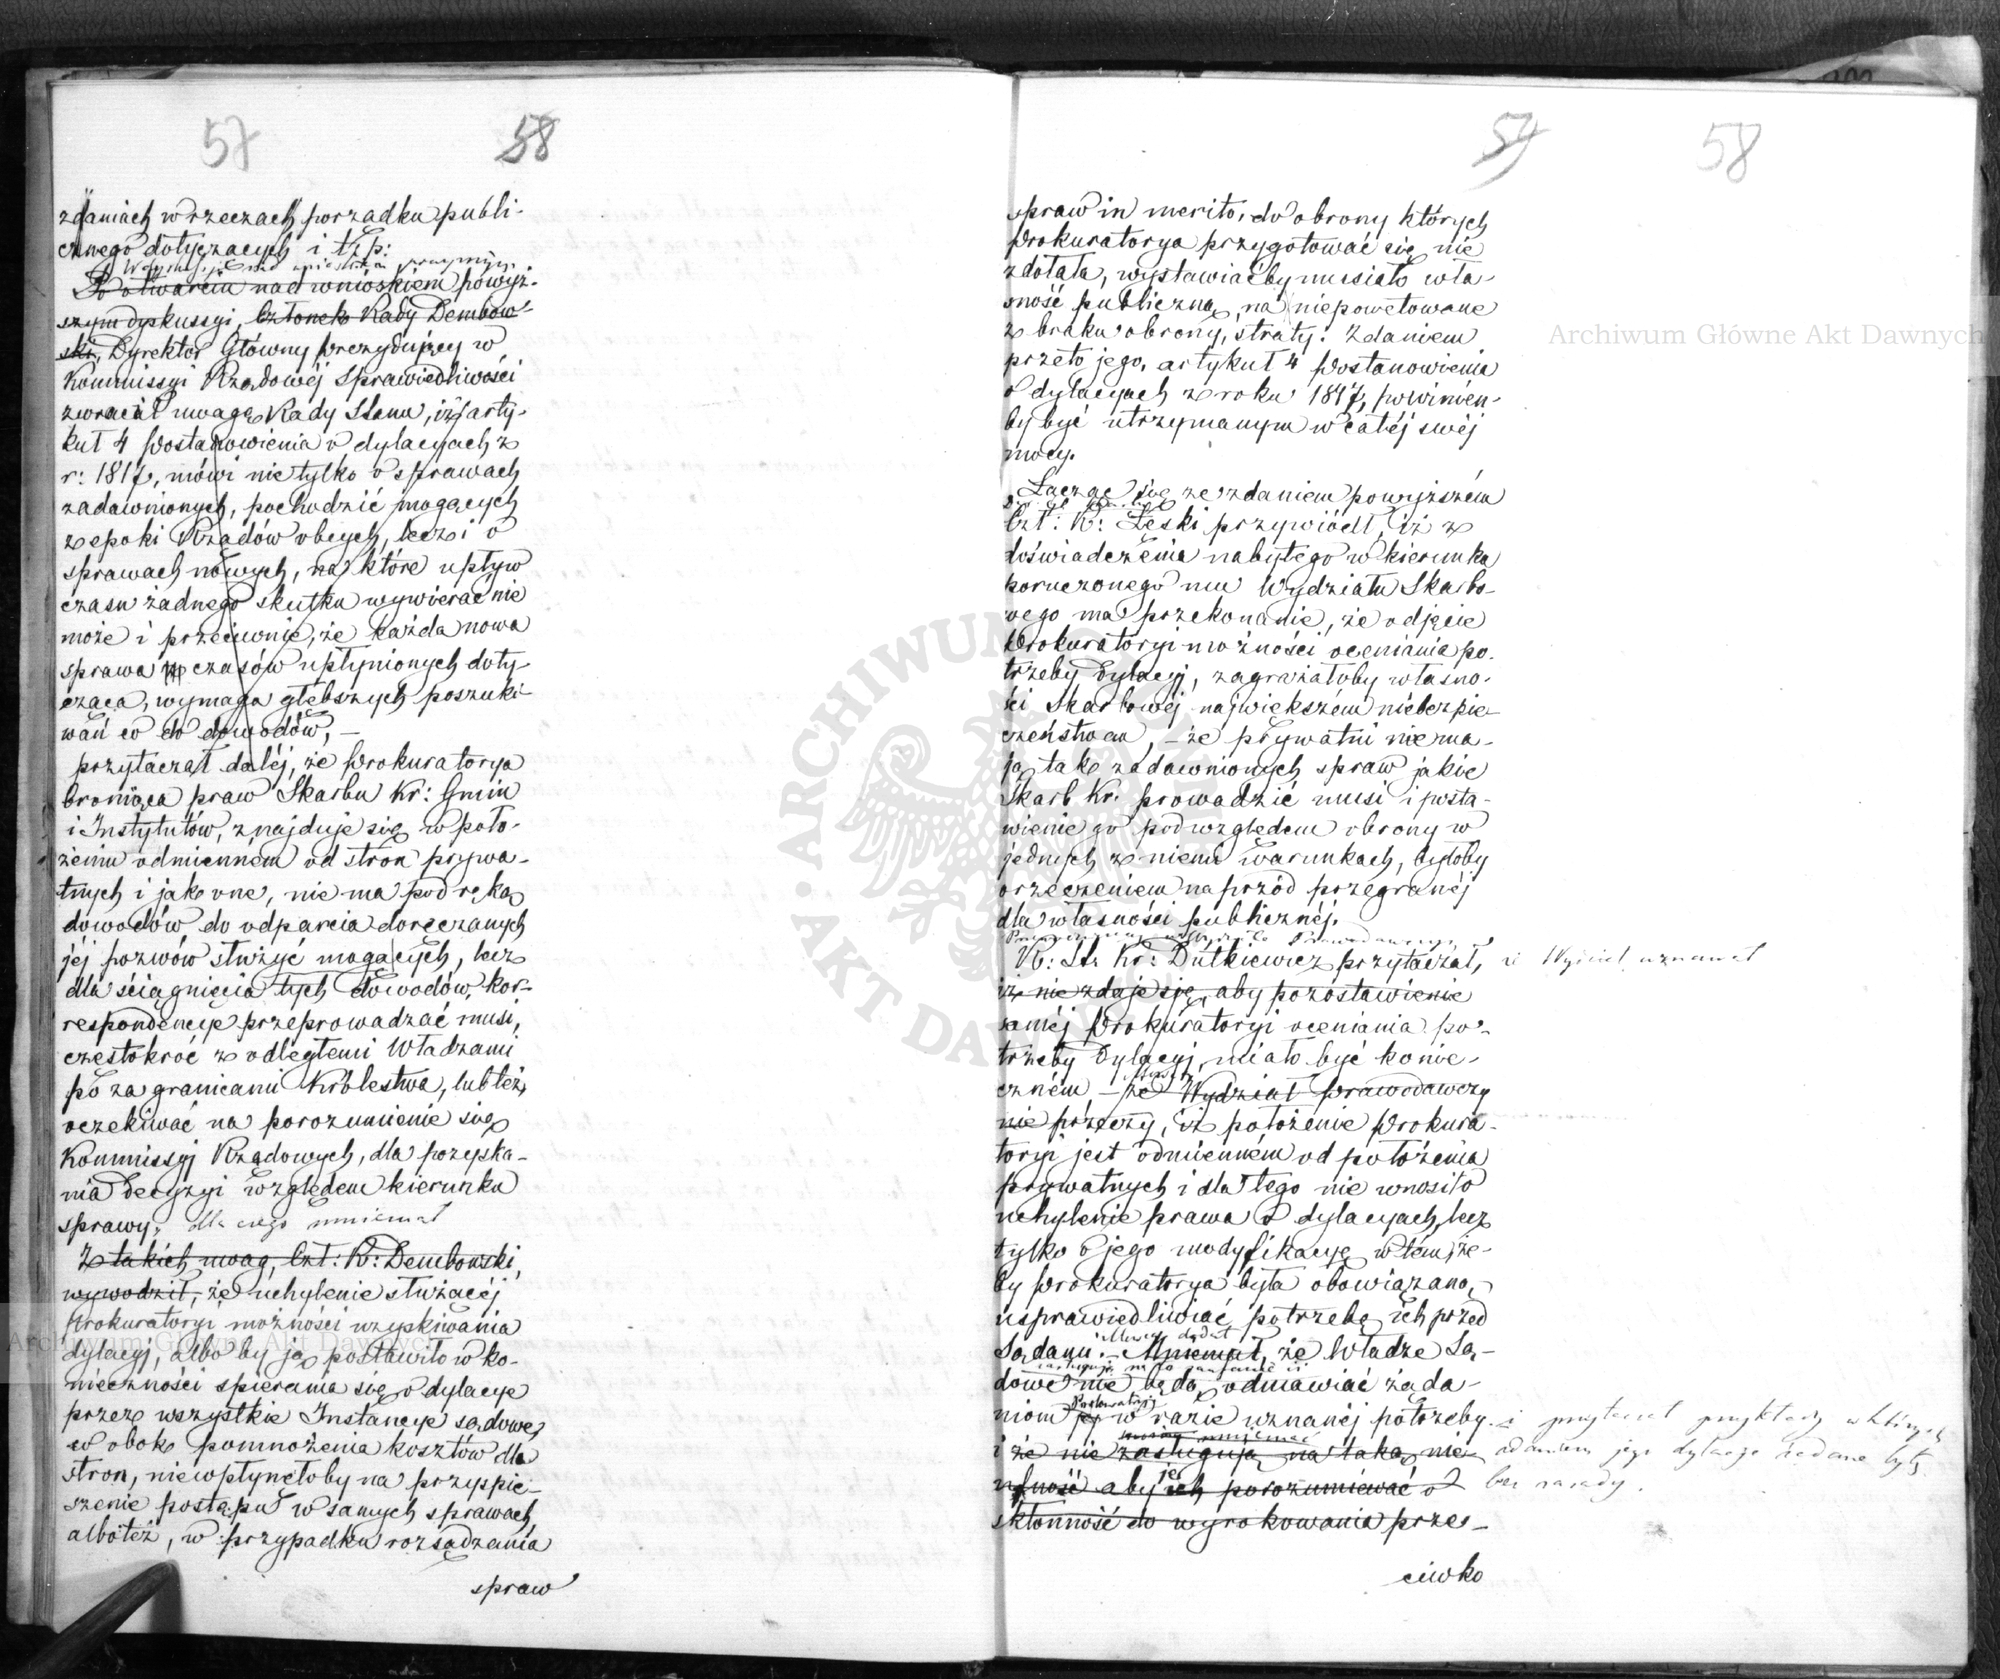 57
58
zdaniach w rzeczach porządku publi-
cznego dotyczących i t. p:
W dyskussyi nad wnioskiem powyższym
Po otwarciu nad wnioskiem powyż-
szym dyskussyi, Członek Rady Dembow-
ski, Dyrektor Główny Prezydujący w
Kommissyi Rządowéj Sprawiedliwości
zwracał uwagę Rady Stanu, iż arty-
kuł 4 Postanowienia o dylacyach z
r: 1817, mówi nietylko o sprawach
zadawnionych, pochodzić mogących
z epoki Rządów obcych, lecz i o
sprawach nowych, na które upływ
czasu żadnego skutku wywierać nie
może i przeciwnie, że każda nowa
sprawa z czasów upłynionych doty-
cząca, wymaga głębszych poszuki-
wań co do dowodów, —
przytaczał daléj, że Prokuratorya
broniąca praw Skarbu Kr: Gmin
i Instytutów, znajduje się w poło-
żeniu odmienném od stron prywa-
tnych i jako one, nie ma pod ręką
dowodów do odparcia doręczanych
jéj pozwów służyć mogących, lecz
dla ściągnięcia tych dowodów, kor-
respondencye przeprowadzać musi,
częstokroć z odległemi Władzami
po za granicami Królestwa, lub też
oczekiwać na porozumienie się
Kommissyj Rządowych, dla pozyska-
nia decyzyi względem kierunku
sprawy; dla czego mniemał
Z takich uwag, Czł: R: Dembowski,
wywodził, że uchylenie służącéj
Prokuratoryi możności uzyskiwania
dylacyj, albo by ją postawiło w ko-
nieczności spierania się o dylacye
przez wszystkie Instancye sądowe,
w obok pomnożenia kosztów dla
stron, niewpłynęłoby na przyspie-
szenie postępu w samych sprawach
albo też, w przypadku rozsądzania
spraw
59
58
spraw in merito, do obrony których
Prokuratorya przygotować się nie
zdołała, wystawiaćby musiało wła-
sność publiczną, na niepowetowane
z braku obrony, straty. Zdaniem
przeto jego, artykuł 4 Postanowienia
o dylacyach z roku 1817, powinien-
by być utrzymanym w całéj swéj
mocy.
Łącząc się ze zdaniem powyższém
Czł: R: Łęski przywiódł, iż z
doświadczenia nabytego w kierunku
poruczonego mu Wydziału Skarbo-
wego ma przekonanie, że odjęcie
Prokuratoryi możności oceniania po-
trzeby dylacyj, zagrażałoby własno-
ści Skarbowéj największém niebezpie-
czeństwem, — że prywatni nie ma-
ją tak zadawnionych spraw jakie
Skarb Kr. prowadzić musi i posta-
wienie go pod względem obrony w
jednych z niemi warunkach, byłoby
orzeczeniem naprzód przegranéj
dla własności publicznéj.
P: St: Kr: Dutkiewicz przytaczał, iż Wydział uznawał
iż nie zdaje się, aby pozostawienie
saméj Prokuratoryi oceniania po-
trzeby dylacyj, miało być konie-
czném, — że Wydział Prawodawczy
nie przeczy, iż położenie Prokura-
toryi jest odmienném od położenia
prywatnych i dla tego nie wnosiło
uchylenie prawa o dylacyach, lecz
tylko o jego modyfikacyę w tém, że-
by Prokuratorya była obowiązaną
usprawiedliwiać potrzebę ich przed
Mówca dodał
Sądami. — Mniemał, że Władze Są-
zasługują na to zaufanie iż
dowe nie będą odmawiać żąda-
Prokuratoryi
niom jéj w razie uznanéj potrzeby i przytaczał przykłady w których
mniemać
i że nie zasługują na taką nie- zdaniem jego dylacye żądane były
je
ufność aby ich porozumiewać o bez zasady.
skłonność do wyrokowania prze-
ciwko
Archiwum Główne Akt Dawnych
Archiwum Główne Akt Dawnych
ARCHIWUM GŁÓWNE AKT DAWNYCH